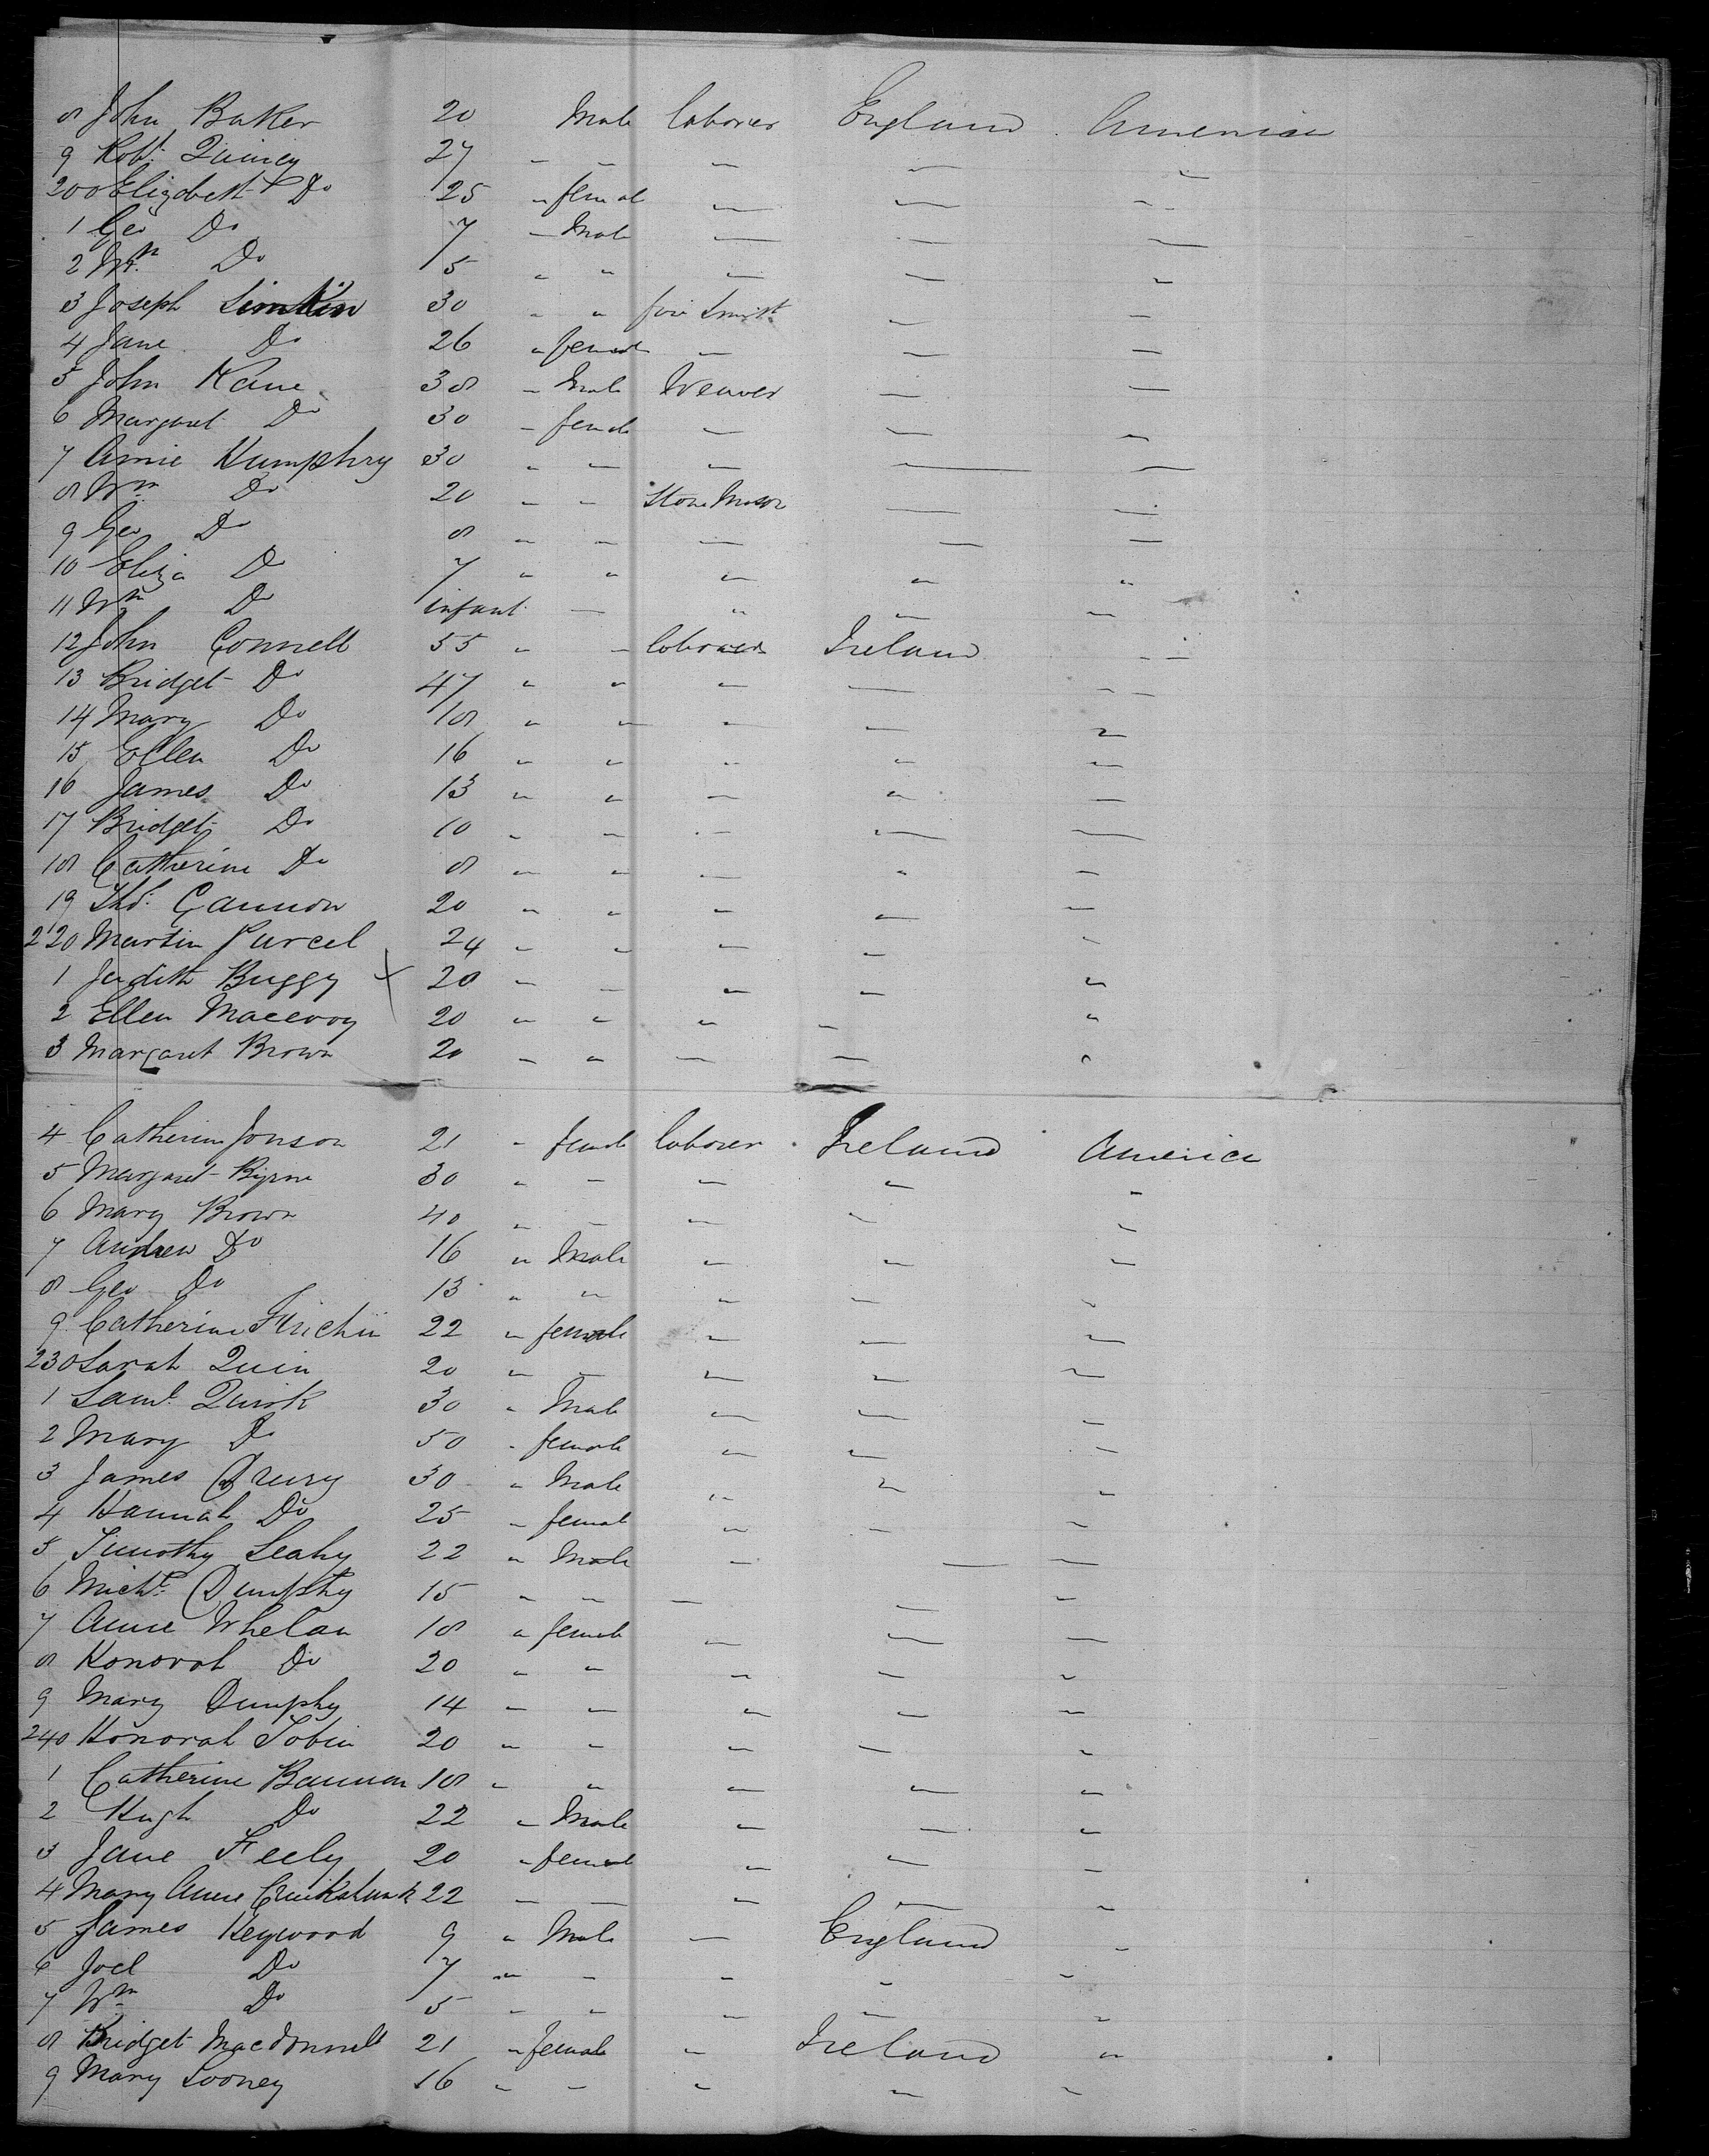 8 John Baker 20 Male laborer England America
9 Robt. Quincy 27 " " " " "
200 Elizabeth Do 25 " female " " "
1 Geo Do 7 " Male " " "
2 Wm Do 5 " " " " "
3 Joseph Simkin 30 " " fire Smith " "
4 Jane Do 26 " female " " "
5 John Kane 38 " Male Weaver " "
6 Margaret Do 30 " female " " "
7 Annie Humphry 30 " " " " "
8 Wm Do 20 " " Stone Mason " "
9 Geo Do 8 " " " " "
10 Eliza Do 7 " " " " "
11 Wm Do infant " " " "
12 John Connell 55 " " laborer Ireland "
13 Bridget Do 47 " " " " "
14 Mary Do 18 " " " " "
15 Ellen Do 16 " " " " "
16 James Do 13 " " " " "
17 Bridget Do 10 " " " " "
18 Catherine Do 8 " " " " "
19 Thos. Gannon 20 " " " " "
220 Martin Purcel 24 " " " " "
1 Judith Buggy X 20 " " " " "
2 Ellen Macevoy 20 " " " " "
3 Margaret Brown 20 " " " " "
4 Catherine Jonson 21 " female laborer Ireland America
5 Margaret Byrne 30 " " " " "
6 Mary Brown 40 " " " " "
7 Andrew Do 16 " Male " " "
8 Geo Do 13 " " " " "
9 Catherine 22 " female " " "
230 Sarah Quin 20 " " " " "
1 Saml. Quirk 30 " Male " " "
2 Mary Do 50 " female " " "
3 James Drury 30 " Male " " "
4 Hannah Do 25 " female " " "
5 Timothy Leahy 22 " Male " " "
6 Michl. Dunphy 15 " " " " "
7 Anne Whelan 18 " female " " "
8 Honorah Do 20 " " " " "
9 Mary Dunphy 14 " " " " "
240 Honorah Tobin 20 " " " " "
1 Catherine Bannon 18 " " " " "
2 Hugh Do 22 " Male " " "
3 Jane Feely 20 " female " " "
4 Mary Anne Cruikshank 22 " " " " "
5 James Heywood 9 " Male " England "
6 Joel Do 7 " " " " "
7 Wm Do 5 " " " " "
8 Bridget Macdonnell 21 " female " Ireland "
9 Mary Looney 16 " " " " "